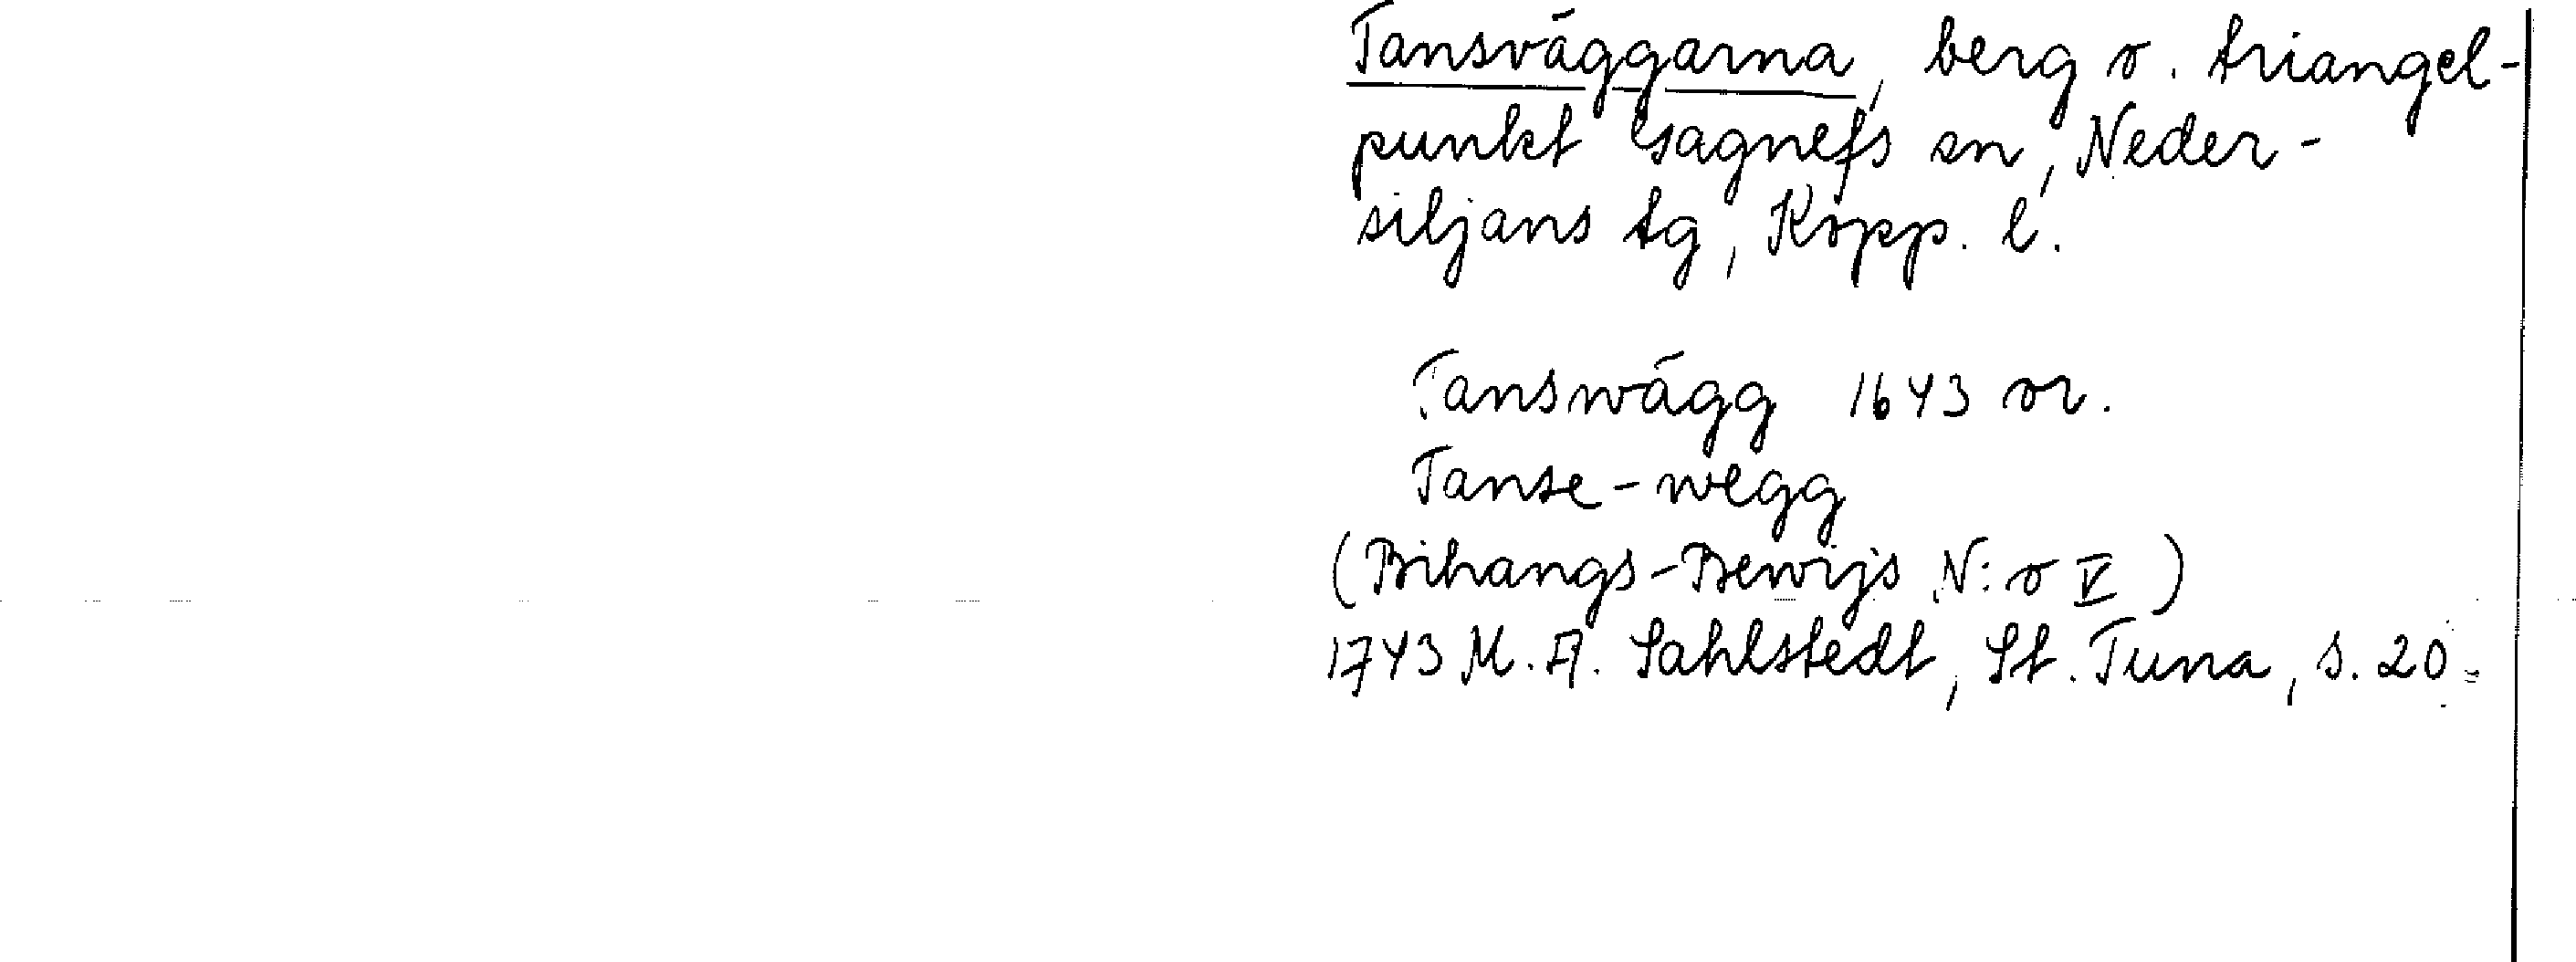 Tansväggarna, berg o. triangel-
punkt Gagnefs sn, Neder-
siljans tg, Kopp. l.
Tanswägg 1643 or.
Tanse-wegg
(Bihangs-Bewijs N:o V)
1743 M. A. Sahlstedt, St. Tuna, s. 20.